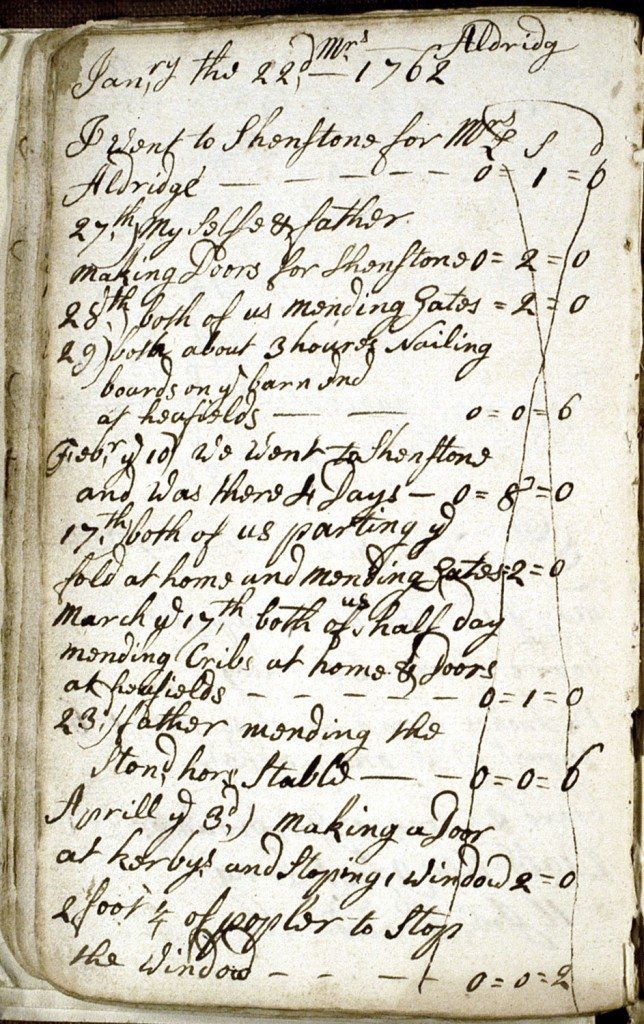 Mrs — Aldridg
Janry the 22d — 1762
I went to Shenstone for Mrs £ s d
Aldridge — — — — — — 0 = 1 = 6
27th) My Selfe & father
making Doors for Shenstone 0 = 2 = 0
28th) both of us mending Gates = 2 = 0
29) both about 3 houres Nailing
boards on ye barn end
at heafields — — 0 = 0 = 6
Febr ye 10) we went to Shenstone
and was there 4 Days — 0 = 8 = 0
17th) both of us parting ye
fold at home and mending Gates = 2 = 0
March ye 17th both of us half day
mending Cribs at home & Doors
at heafields — — — — — — 0 = 1 = 0
23d) father mending the
Stond hors Stable — — — 0 = 0 = 6
Aprill ye 3d) making a Door
at kerbys and Stoping 1 window 2 = 0
2 foot 1/4 of popler to Stop
the window — — — — 0 = 0 = 2